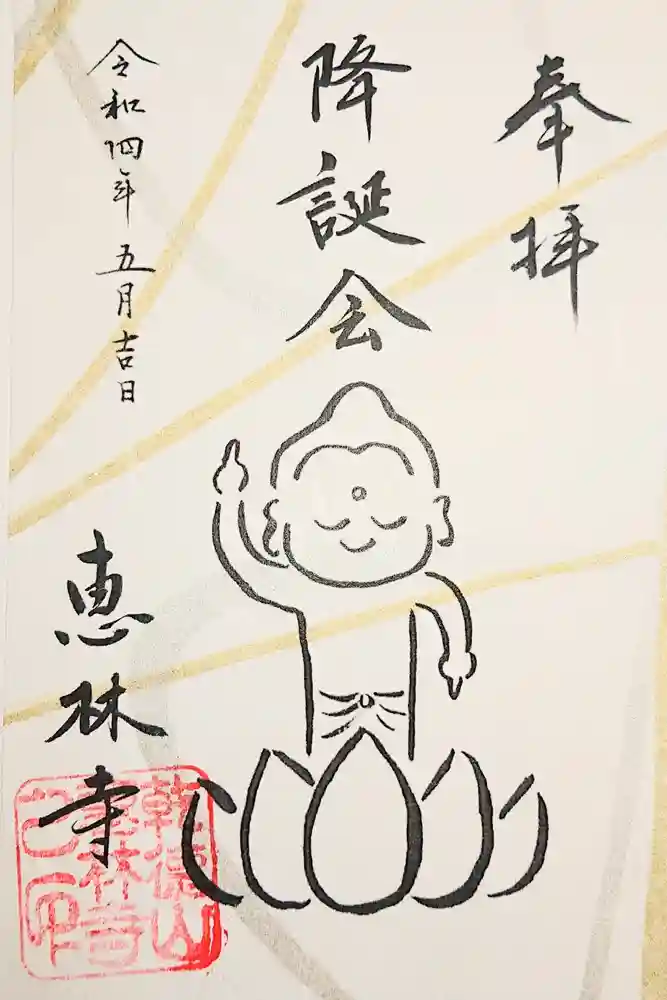 奉拝
降誕会
令和四年五月吉日
恵林寺
乾徳山
恵林寺
之印